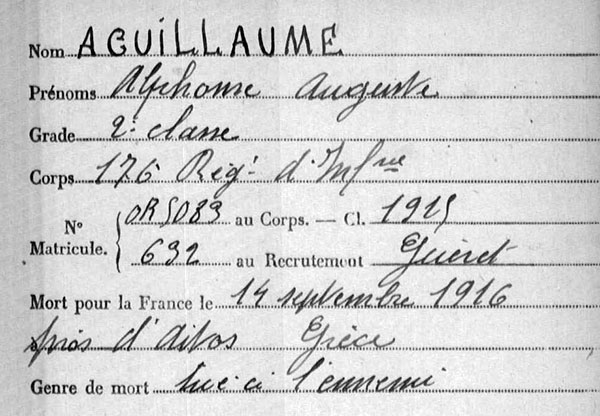 Nom AGUILLAUME
Prénoms Alphonse Auguste
Grade 2e classe
Corps 176 Régt d'Infrie
No Matricule. OR5083 au Corps. — Cl. 1915
632 au Recrutement Guéret
Mort pour la France le 14 septembre 1916
près d'Aitos Grèce
Genre de mort tué à l'ennemi